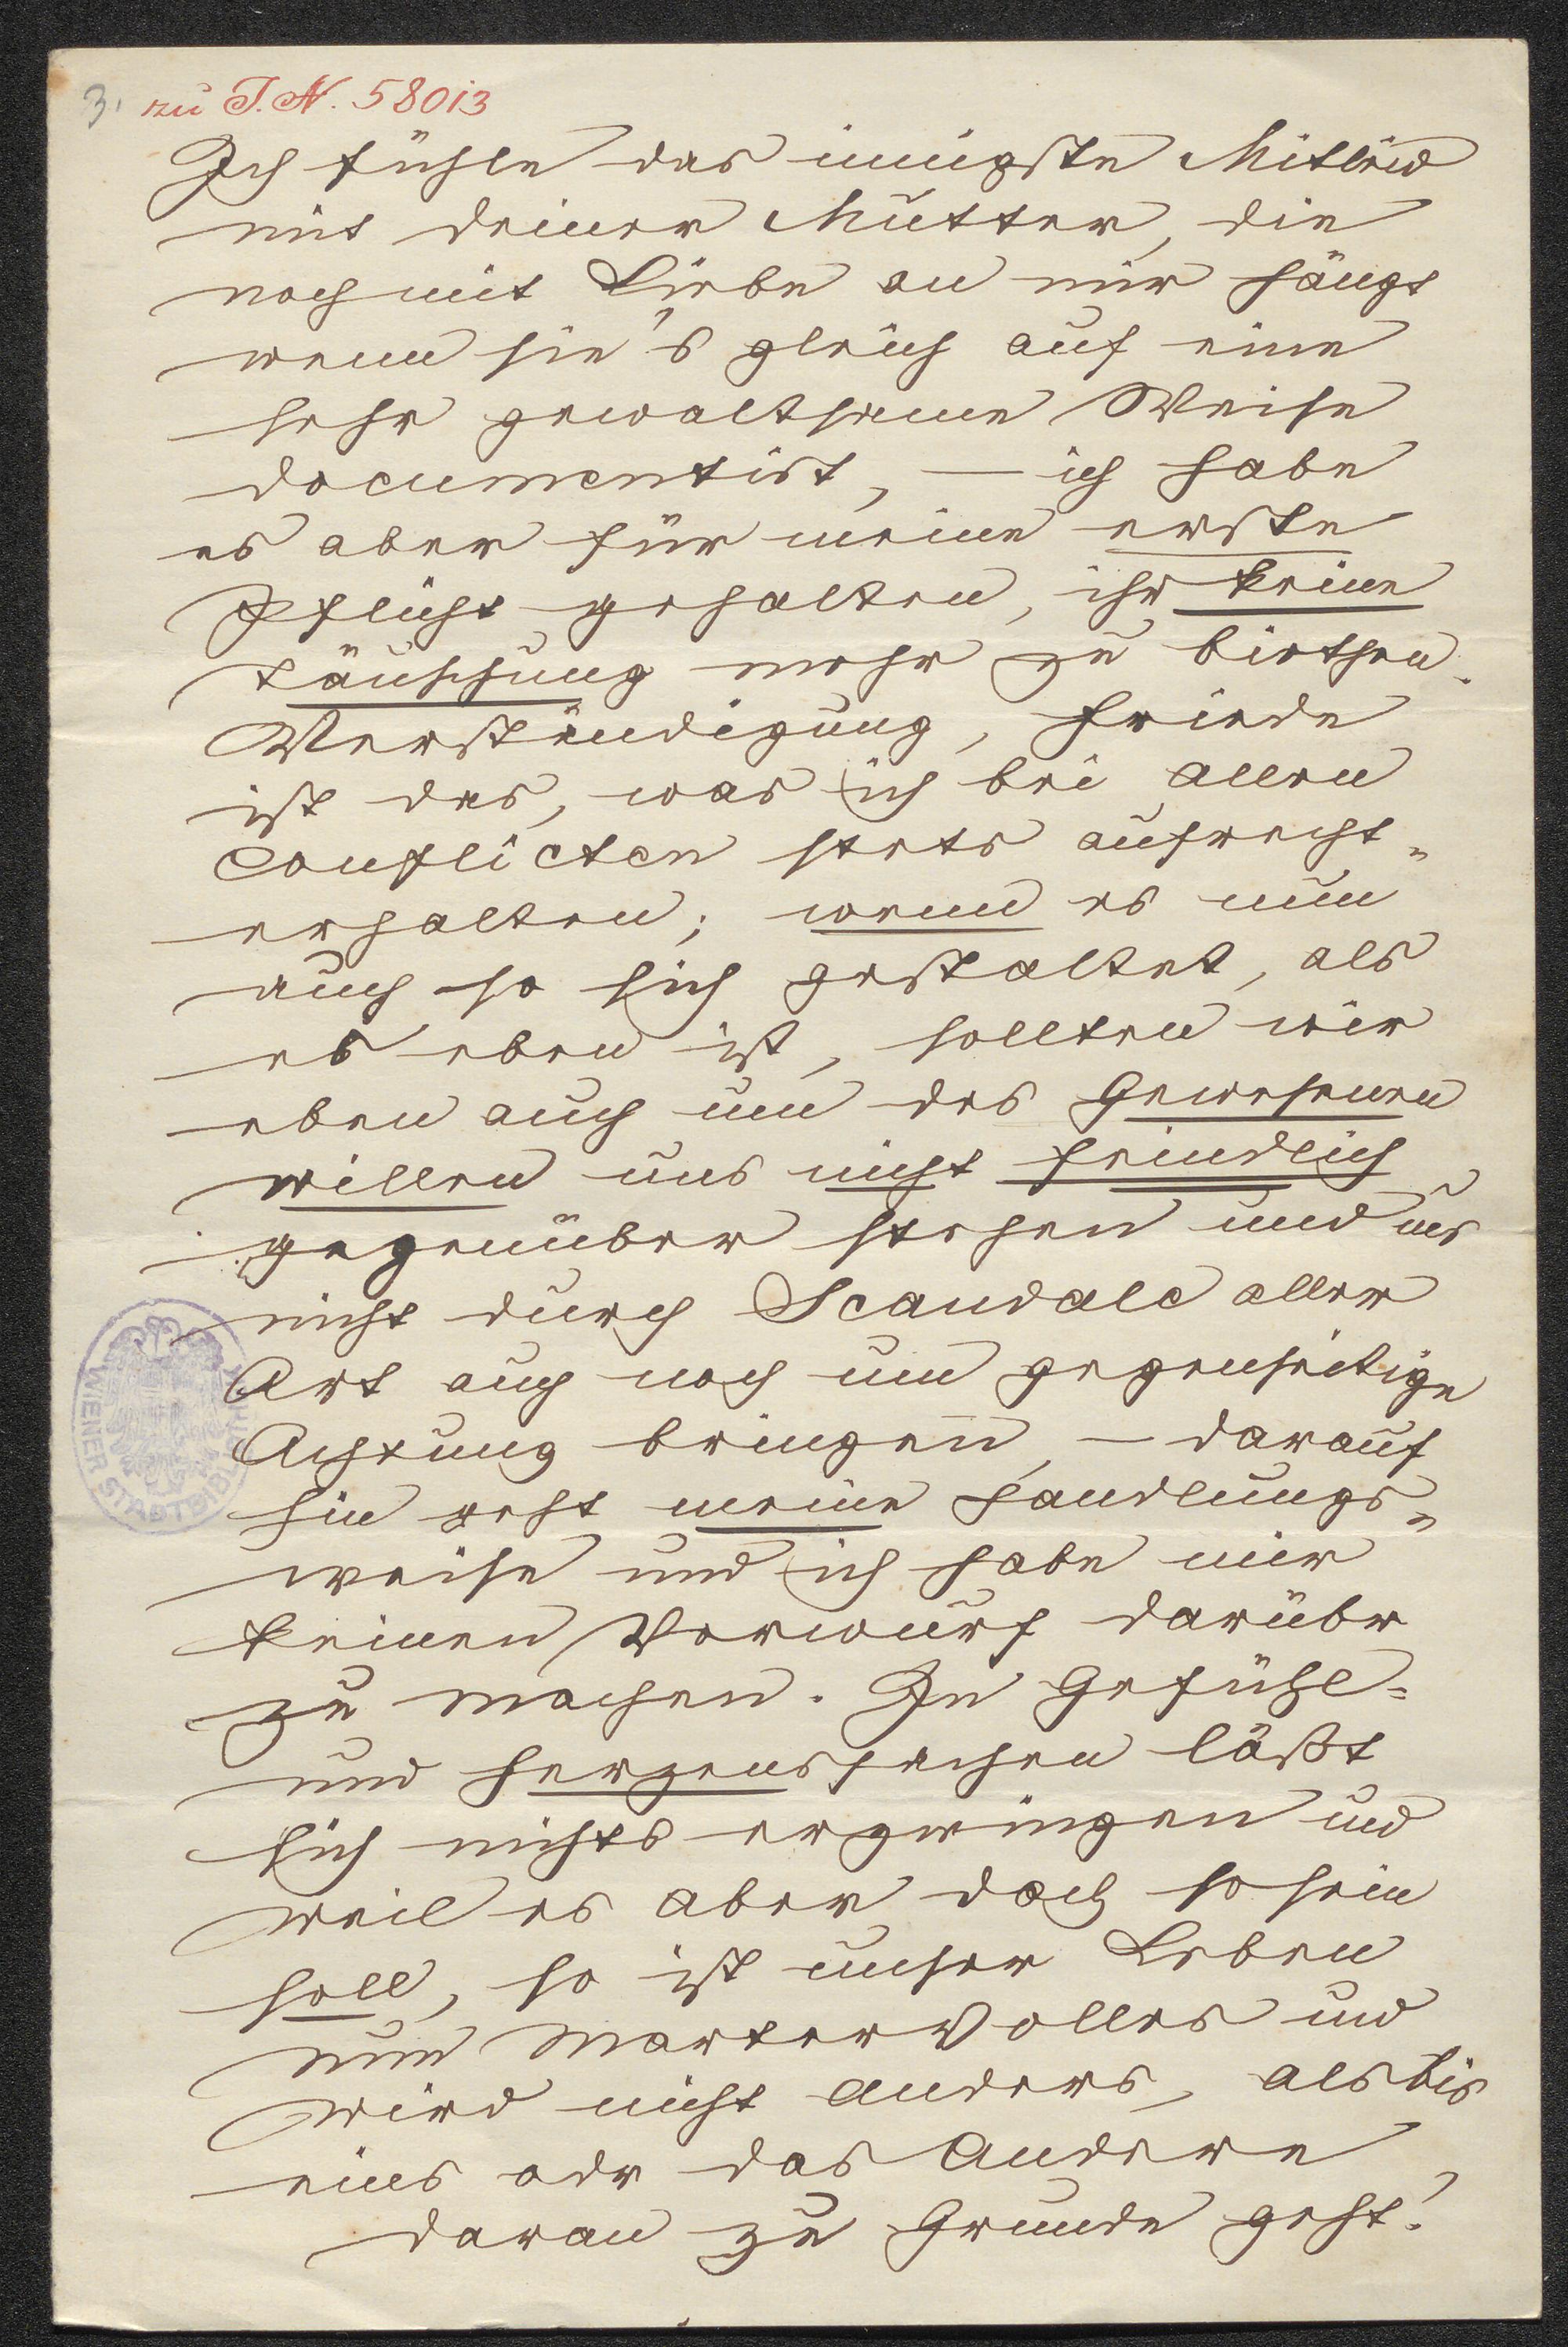 3. zu I.N. 58013
Ich fühle das innigste Mitleid
mit deiner Mutter, die
noch mit Liebe an mir hängt
wenn sie's gleich auf eine
sehr gewaltsame Weise
documentirt, — ich habe
es aber für meine erste
Pflicht gehalten, ihr keine
Täuschung mehr zu biethen.
Verständigung, Friede
ist das, was ich bei allen
Conflicten stets aufrecht-
erhalten; wenn es nun
auch so sich gestaltet, als
es eben ist, sollten wir
eben auch um des Gewesenen
willen uns nicht feindlich
gegenüber stehen und uns
nicht durch Scandale aller
Art auch noch um gegenseitige
Achtung bringen, — darauf
hin geht meine Handlungs-
weise und ich habe mir
keinen Vorwurf darüber
zu machen. In Gefühl-
und Herzenssachen läßt
sich nichts erzwingen und
weil es aber doch so sein
soll, so ist unser Leben
nun martervolles und
wird nicht anders, als bis
eins oder das Andere
daran zu Grunde geht!
WIENER STADTBIBL